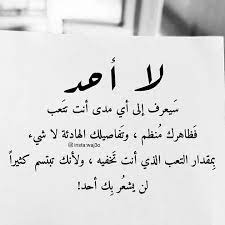 لا أحد
سَيعرف إلى أي مدى أنت تتَعب
فَظاهرك مُنظم ، وتَفاصيلك الهادئة لا شيء
@insta:waj3o
بِمقدار التعب الذي أنت تَخفيه ، ولأنك تبتسم كثيراً
لن يشعُر بِك أحد!